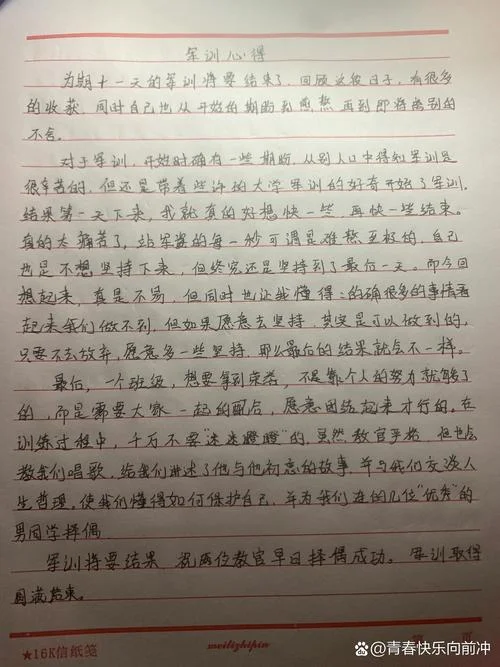 军训心得
为期十一天的军训将要结束了，回顾这段日子，有很多
的收获，同时自己也从开始的期盼到煎熬再到即将离别的
不舍。
对于军训，开始时确有一些期盼，从别人口中得知军训是
很辛苦的，但还是带着些许的大学军训的好奇开始了军训，
结果第一天下来，我就真的好想快一些，再快一些结束。
真的太痛苦了，站军姿的每一秒可谓是难熬至极的，自己
也是不想坚持下来，但终究还是坚持到了最后一天。而今回
想起来，真是不易，但同时也让我懂得：的确很多的事情看
起来我们做不到，但如果愿意去坚持，其实是可以做到的，
只要不去放弃，愿意多一些坚持，那么最后的结果就会不一样。
最后，一个班级，想要得到荣誉，不是靠个人的努力就够了
的，而是需要大家一起的配合，愿意团结起来才行的。在
训练过程中，千万不要“迷迷瞪瞪”的。虽然教官严格，但也会
教我们唱歌，给我们讲述了他与他初恋的故事，并与我们交谈人
生哲理。使我们懂得如何保护自己，并为我们连的几位“优秀”的
男同学择偶
军训将要结果，祝两位教官早日择偶成功。军训取得
圆满结束。
★16K信纸笺
meilizhipin
第 页
@青春快乐向前冲